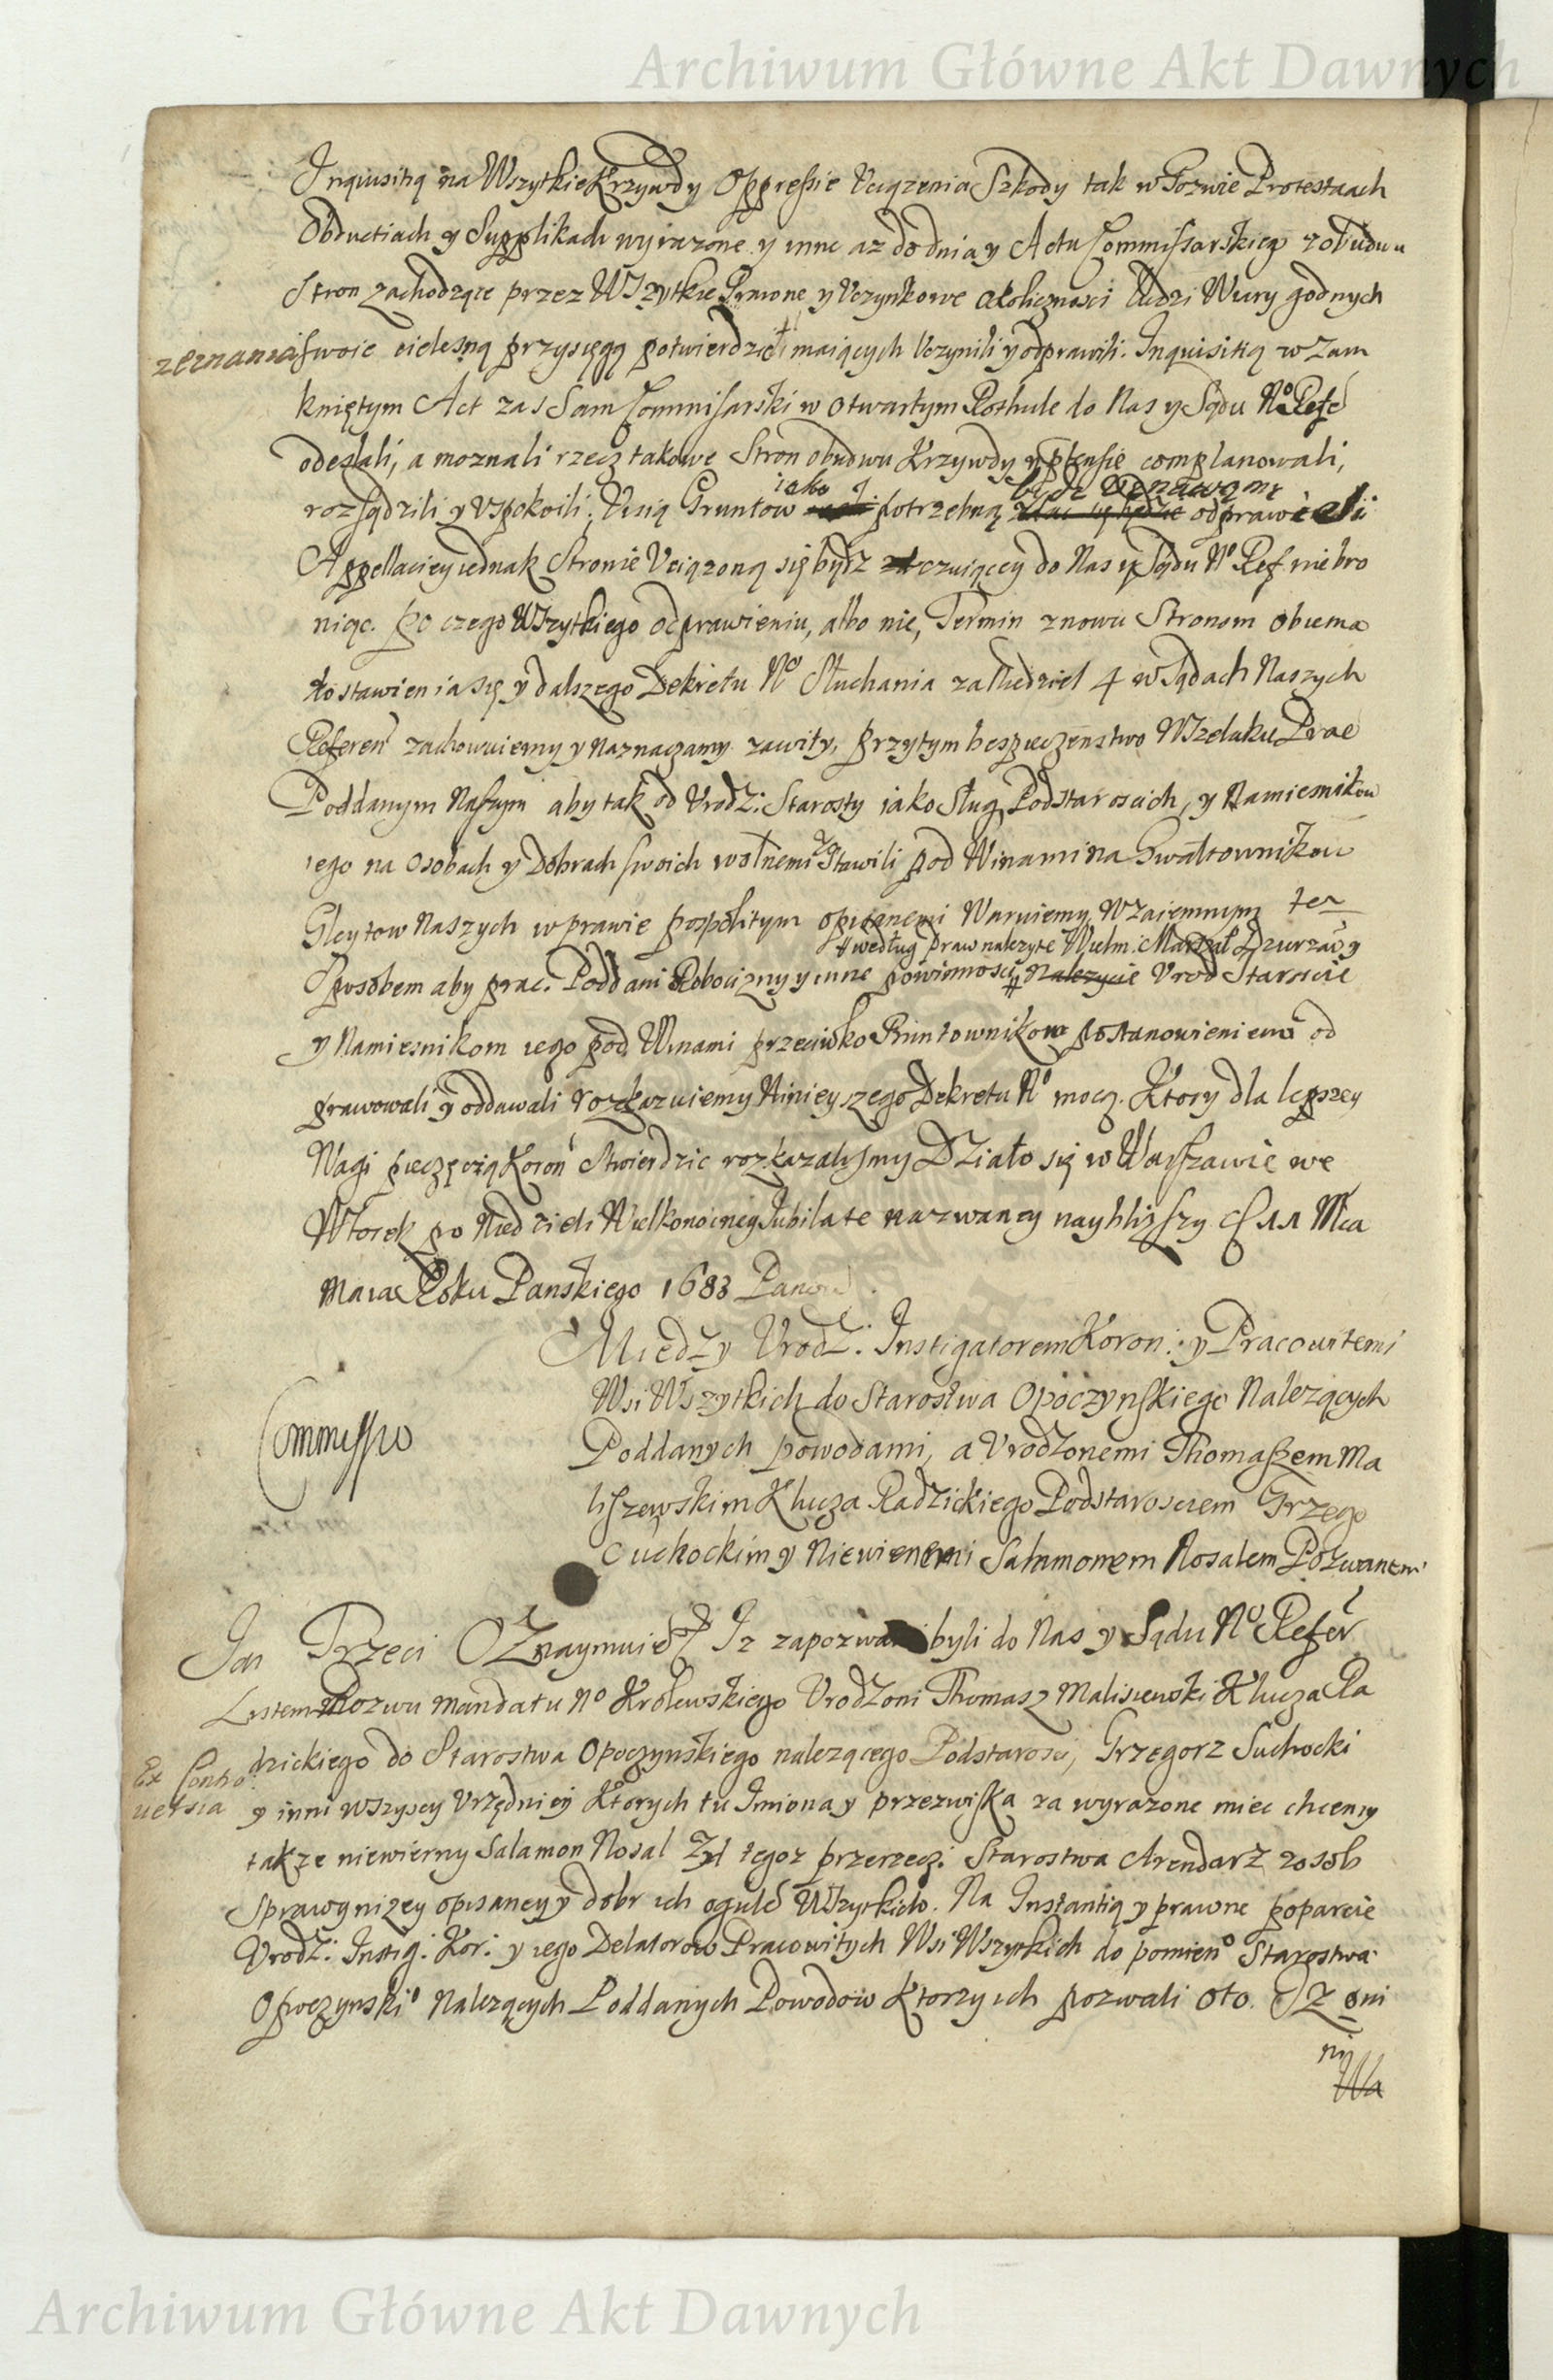 Archiwum Główne Akt Dawnych
Inquisitią na Wszytkie Krzywdy Oppressie Uciązenia Szkody tak w Pozwie Protestaach
Obductiach y Supplikach wyrazone y inne az do dnia y Actu Commissarskieg° z obudwu
Stron zachodzące przez Wszytkie Prawne y Uczynkowe okoliczności Ludzi Wiary godnych
zeznania swoie cielesną przysięgą potwierdzić maiących Uczynili y odprawili. Inquisitią w Zam
kniętym Act zas Sam Commissarski w otwartym Rothule do Nas y Sądu N° Refe
odesłali, a moznali rzecz takowe Stron obudwu Krzywdy y ptensie complanowali,
rozsądzili y Uspokoili, Visią Gruntow iako potrzebną odprawieli
Appellaciey iednak Stronie Uciązoną się bydz czuiącey do Nas y Sądu N° Ref nie bro
niąc. po czego Wszytkiego odprawieniu, albo nie, Termin znowu Stronom obiema
do stawienia się y dalszego Dekretu N° Słuchania za Niedziel 4 w Sądach Naszych
Referen zachowuiemy y naznaczamy zawity, przytym bespieczenstwo Wszelakie Prac
Poddanym Naszym aby tak od Urodz: Starosty iako Sług Podstaroscich, y Namiesnikow
iego na osobach y Dobrach swoich wolnemi zostawili pod Winami na Gwałtownikow
Gleytow Naszych w prawie pospolitym opisanemi Waruiemy, Wzaiemnym tez
według praw nalezyte Wielm: Marszał
Sposobem aby prac. Poddani Robocizny y inne powinnosci nalezycie Urod Staroscie
y Namiesnikom iego pod Winami przeciwko Buntownikow postanowieniemi od
prawowali y oddawali rozkazuiemy Ninieyszego Dekretu N° mocą. Ktory dla lepszey
Wagi pieczęcią Koron Stwierdzic rozkazalismy Działo się w Warszawie we
Wtorek po Niedzieli Wielkonocney Jubilate nazwaney naybliższy 11 Mca
Maia Roku Panskiego 1683 Panow
Między Urodz: Instigatorem Koron: y Pracowitemi
Wsi Wszytkich do Starostwa Opoczynskiego Nalezących
Commissio
Poddanych powodami, a Urodzonemi Thomaszem Ma
liszewskim Klucza Radzickiego Podstarosciem Grzego
Suchockim y Niewiernemi Salamonem Nosalem Pozwanemi
Jan Trzeci Oznaymuie Iz zapozwani byli do Nas y Sądu N° Refer
Listem Pozwu mandatu N° Królewskiego Urodzoni Thomasz Malisiewski Klucza Ra
Ex Contro
uersia
dzickiego do Starostwa Opoczynskiego nalezącego Podstarosci, Grzegorz Suchocki
y inni wszyscy Urzędnicy Ktorych tu Imiona y przezwiska za wyrazone miec chcemy
takze niewierny Salamon Nosal Zyd tegoz przerzecz: Starostwa Arendarz z osob
Sprawy nizey opisaney y dobr ich ogułe Wszytkich. Na Instantią y prawne poparcie
Urodz: Instig: Kor: y iego Delatorow Pracowitych Wsi Wszytkich do pomien° Starostwa
Opoczynski° Nalezących Poddanych Powodow Ktorzy ich pozwali oto Iz oni
ny
Archiwum Główne Akt Dawnych